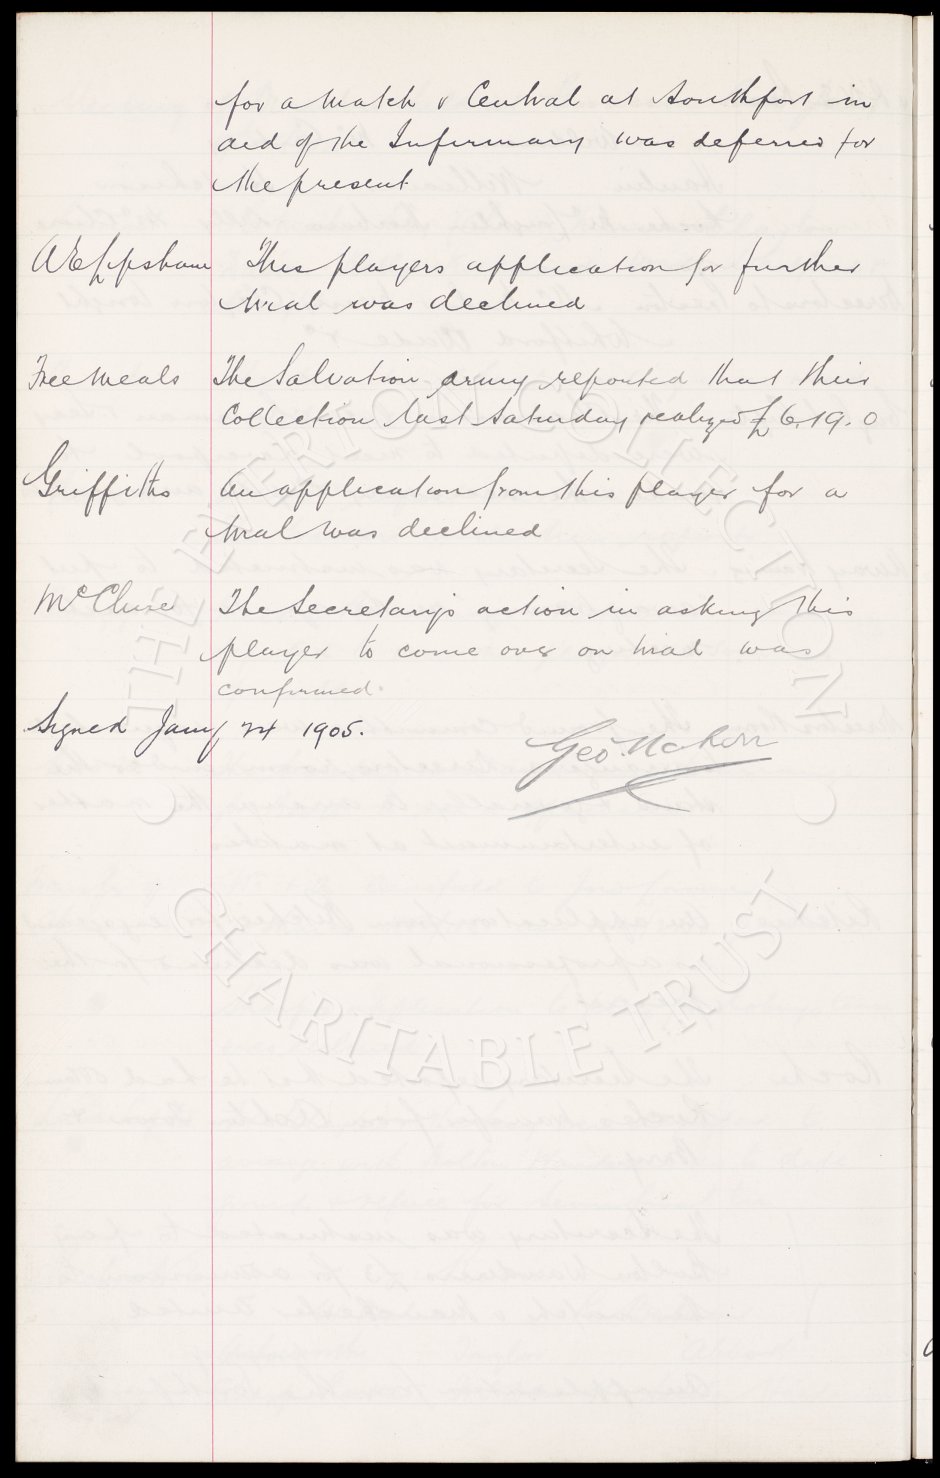 for a match v Central at Southport in
aid of the Infirmary was deferred for
the present.
A E Eppsham This players application for further
trial was declined
Free Meals The Salvation Army reported that their
Collection last Saturday realized £6.19.0
Griffiths An application from this player for a
trial was declined
McClure The Secretary's action in asking this
player to come over on trial was
confirmed.
Signed Jany 24 1905.
Geo. Mahon
THE EVERTON COLLECTION
CHARITABLE TRUST